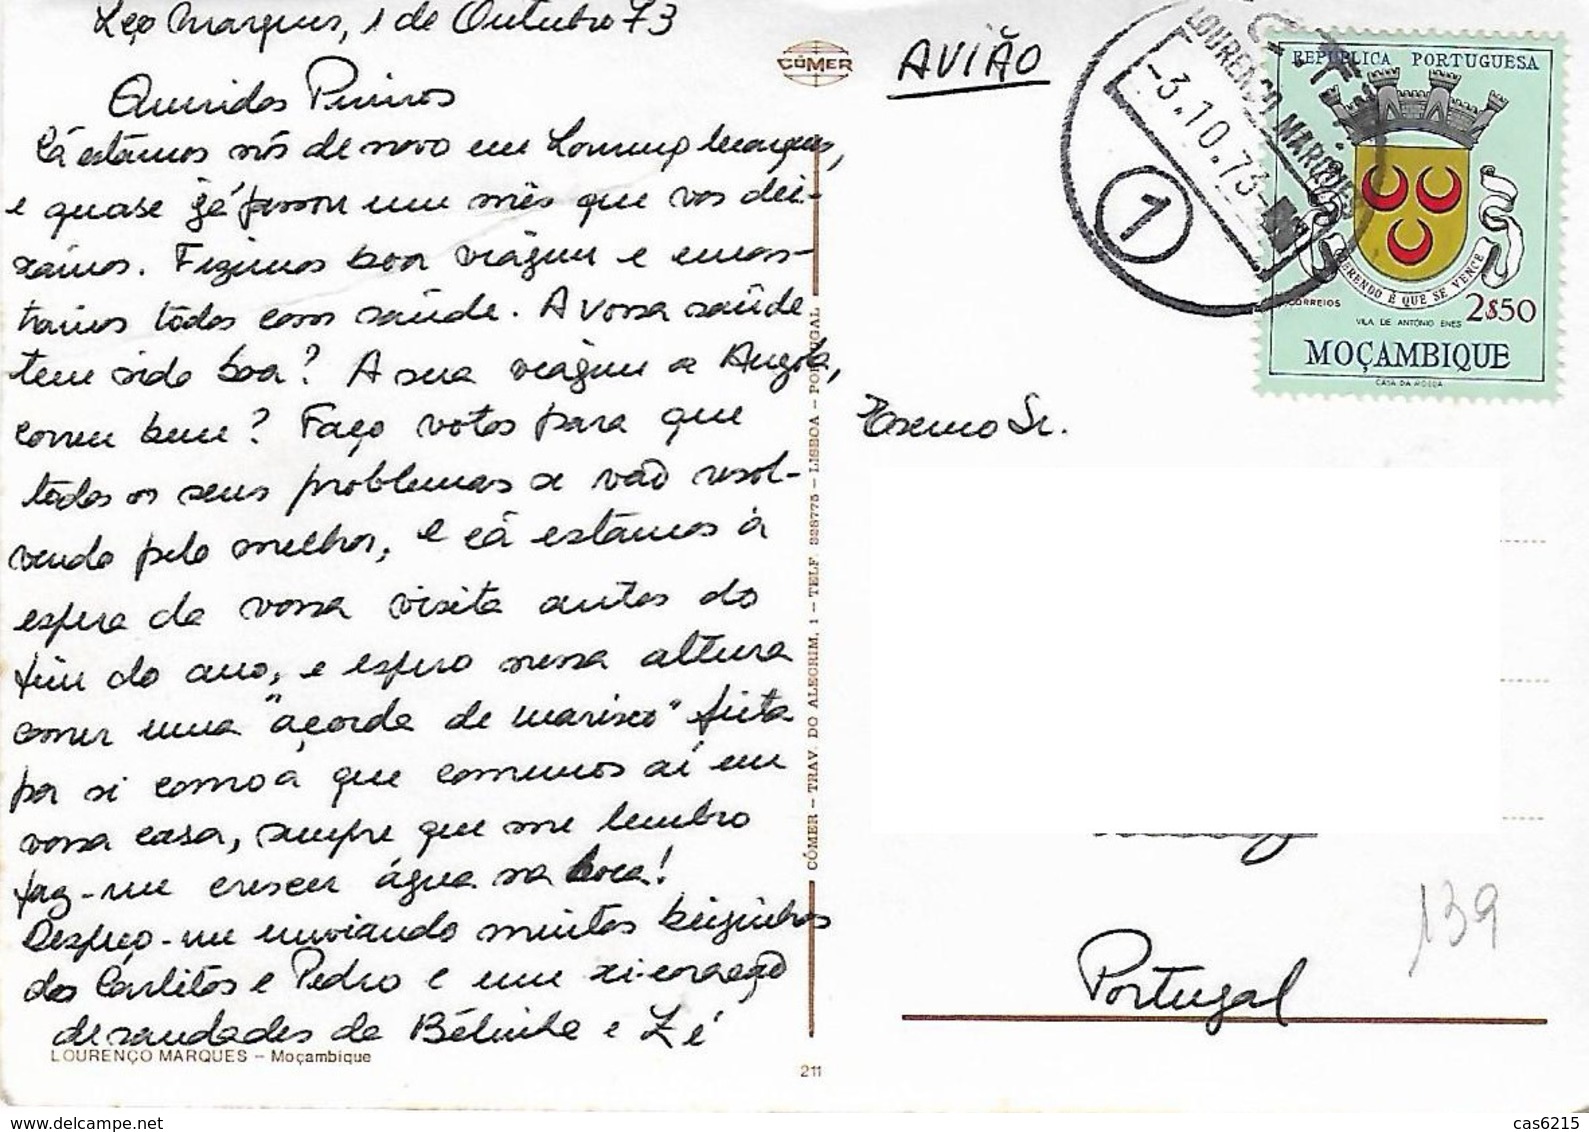 Lço Marques, 1 de Outubro 73
Queridos
Cá estamos nós de novo em Lourenço Marques,
e quase já passou um mês que vos dei-
xámos. Fizemos boa viágem e encon-
trámos todos com saúde. A vossa saúde
tem sido boa? A sua viágem a Angola,
correu bem? Faço votos para que
todos os seus problemas se vão resol-
vendo pelo melhor, e cá estamos à
espera da vossa visita antes do
fim do ano, e espero nessa altura
comer uma "açorda de marisco" feita
por si como a que comemos aí em
vossa casa, sempre que me lembro
faz-me crescer água na boca!
Despeço-me enviando muitos beijinhos
dos Carlitos e Pedro e um xi-coração
de saudades da Bélinha e Zé
LOURENÇO MARQUES – Moçambique
CÓMER – TRAV. DO ALECRIM, 1 – TELF. 328775 – LISBOA – PORTUGAL
211
CÓMER
AVIÃO
C.T.T.
LOURENÇO MARQUES
-3.10.73-
1
REPÚBLICA PORTUGUESA
QUERENDO É QUE SE VENCE
CORREIOS
2$50
VILA DE ANTÓNIO ENES
MOÇAMBIQUE
CASA DA MOEDA
Exmo Sr.
139
Portugal
cas6215